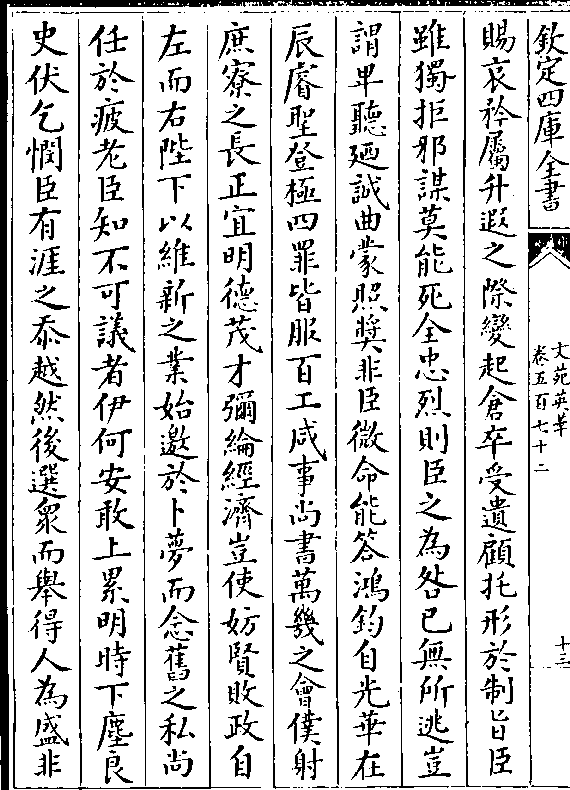 欽定四庫全書
文苑英華
卷五百七十二
十三
賜哀矜屬升遐之際變起倉卒受遺顧托形於制旨臣
雖獨拒邪謀莫能死全忠烈則臣之為咎已無所逃豈
謂卑聽廼誠曲蒙照奬非臣微命能答鴻鈞自光華在
辰睿聖登極四罪皆服百工咸事尚書萬幾之會僕射
庶寮之長正宜明德茂才彌綸經濟豈使妨賢敗政自
左而右陛下以維新之業始邀於卜夢而念舊之私尚
任於疲老臣知不可議者伊何安敢上累明時下塵良
史伏乞憫臣有涯之忝越然後選衆而舉得人為盛非